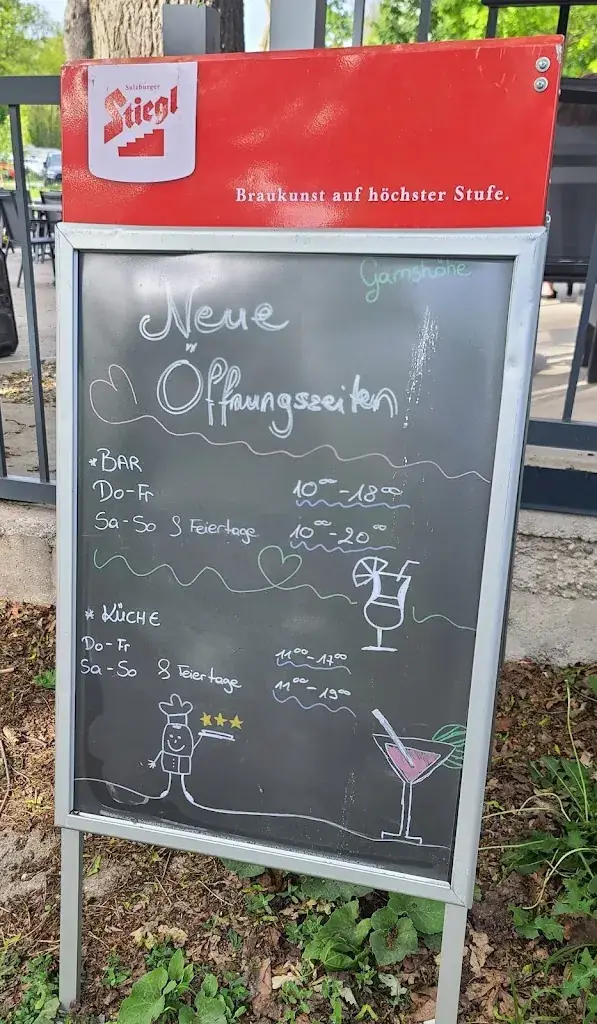 Salzburger
Stiegl
Braukunst auf höchster Stufe.
Gamshöhe
Neue
Öffnungszeiten
*BAR
Do-Fr 10⁰⁰-18⁰⁰
Sa-So & Feiertage 10⁰⁰-20⁰⁰
* KÜCHE
Do-Fr 11⁰⁰-17⁰⁰
Sa-So & Feiertage 11⁰⁰-19⁰⁰